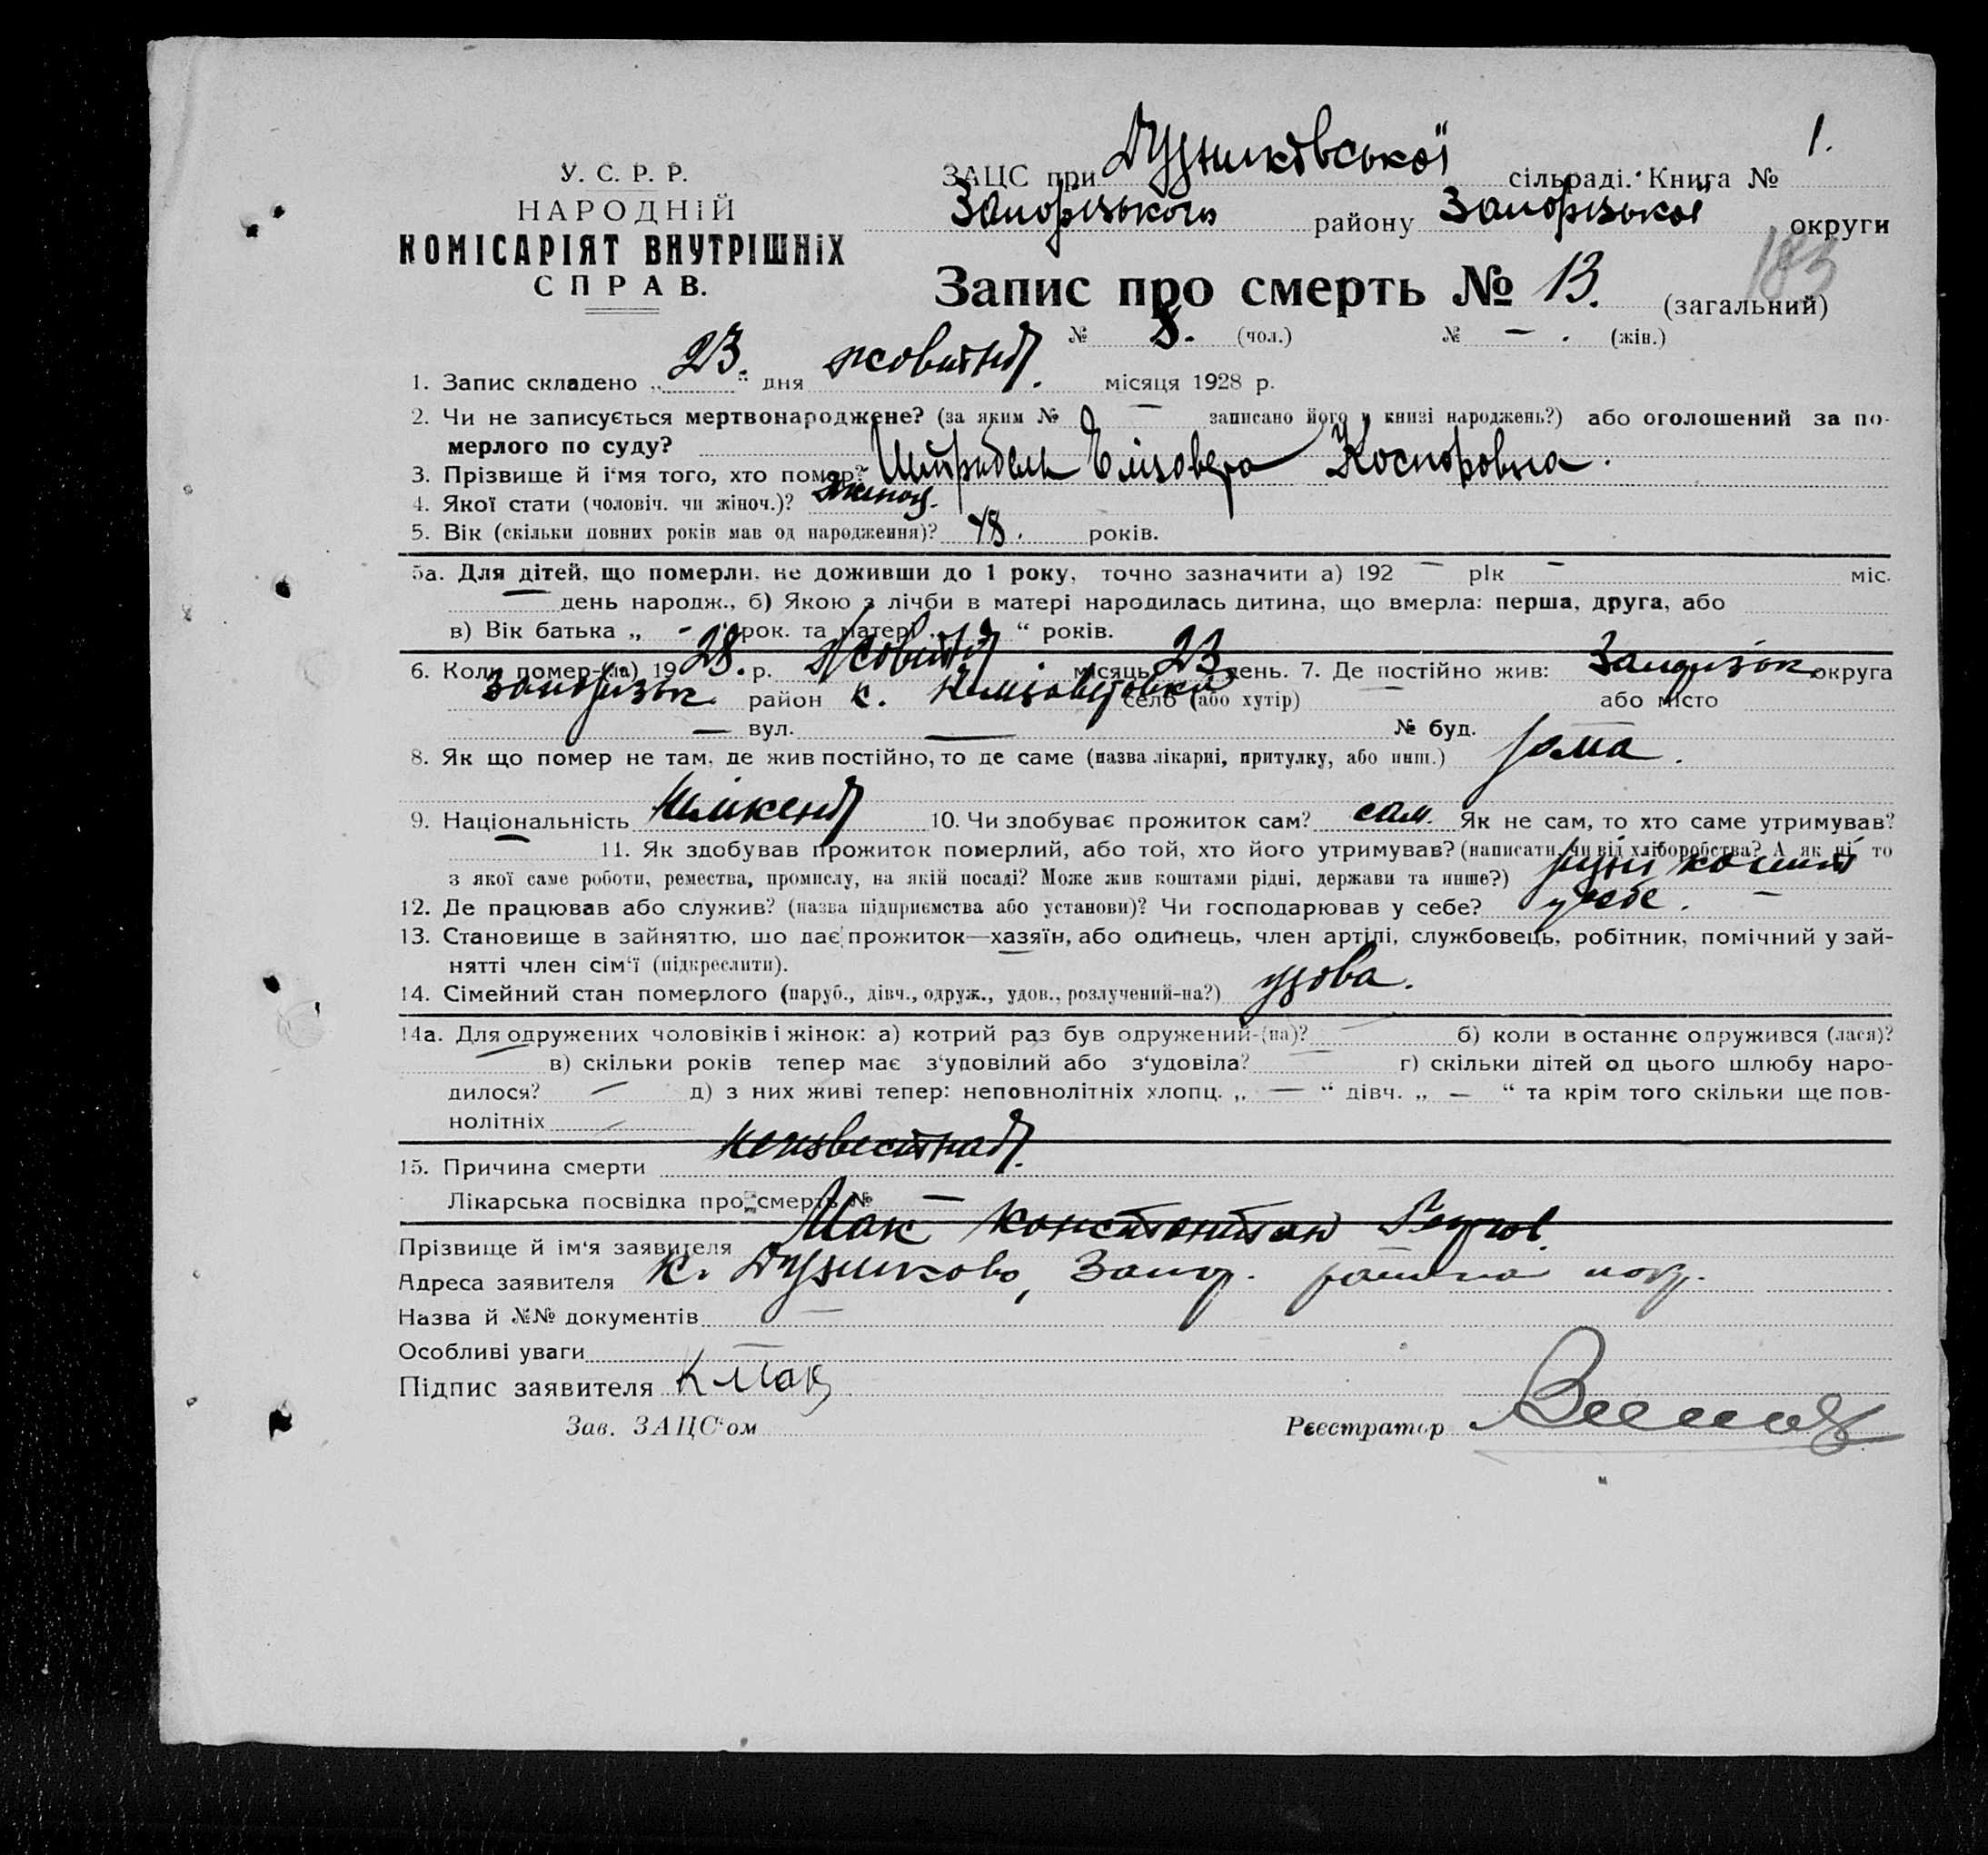 У. С. Р. Р.
НАРОДНІЙ
КОМІСАРІЯТ ВНУТРІШНІХ
СПРАВ.
ЗАЦС при сільраді. Книга № 1.
Запорізького району Запорізької округи
183
Запис про смерть № 13. (загальний)
№ 8. (чол.) № — . (жін.)
1. Запис складено „ 23. “ дня жовтня. місяця 1928 р.
2. Чи не записується мертвонароджене? (за яким № — записано його у книзі народжень?) або оголошений за по-
мерлого по суду?
3. Прізвище й ім'я того, хто помер?
4. Якої стати (чоловіч. чи жіноч.)? жіноч.
5. Вік (скільки повних років мав од народження)? 48. років.
5а. Для дітей, що померли, не доживши до 1 року, точно зазначити а) 192 — рік — міс.
— день народж., б) Якою з лічби в матері народилась дитина, що вмерла: перша, друга, або
в) Вік батька „ - “ рок. та матері „ “ років.
6. Коли помер-(ла) 19 28. р. жовтня. місяць 23 день. 7. Де постійно жив: округа
район к. село (або хутір) — або місто
— вул. — № буд. —
8. Як що помер не там, де жив постійно, то де саме (назва лікарні, притулку, або инш.) дома.
9. Національність 10. Чи здобуває прожиток сам? сам. Як не сам, то хто саме утримував?
— 11. Як здобував прожиток померлий, або той, хто його утримував? (написати, чи від хліборобства? А як ні, то
з якої саме роботи, ремества, промислу, на якій посаді? Може жив коштами рідні, держави та инше?)
12. Де працював або служив? (назва підприємства або установи)? Чи господарював у себе? у себе. —
13. Становище в зайняттю, що дає прожиток—хазяїн, або одинець, член артілі, службовець, робітник, помічний у зай-
нятті член сім'ї (підкреслити).
14. Сімейний стан померлого (паруб., дівч., одруж., удов., розлучений-на?) удова.
14а. Для одружених чоловіків і жінок: а) котрий раз був одружений-(на)? — б) коли в останнє одружився (лася)?
— в) скільки років тепер має з'удовілий або з'удовіла? — г) скільки дітей од цього шлюбу наро-
дилося? — д) з них живі тепер: неповнолітніх хлопц. „ — “ дівч. „ — “ та крім того скільки ще пов-
нолітніх —
15. Причина смерти неизвестная.
Лікарська посвідка про смерть № —
Прізвище й ім'я заявителя Мак Константин
Адреса заявителя к. Запор.
Назва й №№ документів —
Особливі уваги —
Підпис заявителя К Мак
Зав. ЗАЦС'ом Реєстратор